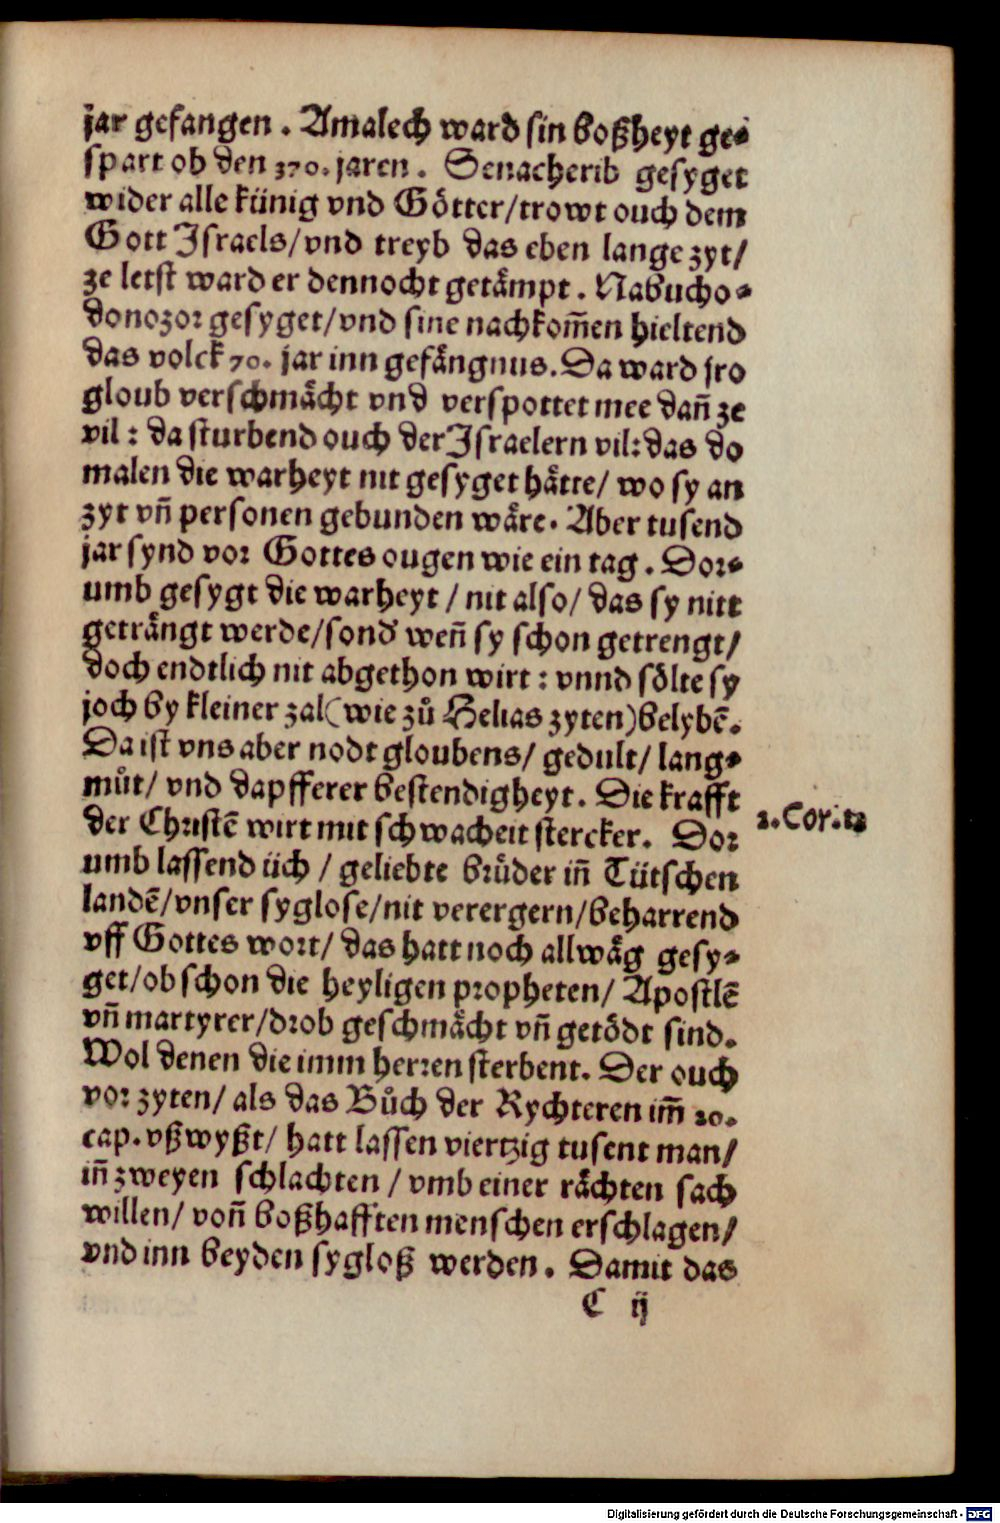 jar gefangen . Amalech ward sin boßheyt ge⸗
spart ob den 370. jaren . Senacherib gesyget
wider alle künig vnd Götter/trowt ouch dem
Gott Israels/vnd treyb das eben lange zyt/
ze letst ward er dennocht getåmpt . Nabucho⸗
donozor gesyget/vnd sine nachkom̃en hieltend
das volck 70. jar inn gefångnus. Da ward jro
gloub verschmåcht vnd verspottet mee dañ ze
vil : da sturbend ouch der Israelern vil: das do
malen die warheyt nit gesyget håtte/ wo sy an
zyt vñ personen gebunden wåre. Aber tusend
jar synd vor Gottes ougen wie ein tag . Dor⸗
umb gesygt die warheyt / nit also/ das sy nitt
getrångt werde/sond̕ weñ sy schon getrengt/
doch endtlich nit abgethon wirt : vnnd sölte sy
joch by kleiner zal(wie zů Helias zyten)belybē.
Da ist vns aber nodt gloubens/ gedult/ lang⸗
můt/ vnd dapfferer bestendigheyt. Die krafft
der Christē wirt mit schwacheit stercker. Dor
2.Cor.12
umb lassend üch / geliebte brůder iñ Tütschen
landē/vnser syglose/nit verergern/beharrend
vff Gottes wort/ das hatt noch allwåg gesy⸗
get/ob schon die heyligen propheten/ Apostlē
vñ martyrer/drob geschmåcht vñ getödt sind.
Wol denen die imm herren sterbent. Der ouch
vor zyten/ als das Bůch der Rychteren im̃ 20.
cap. vßwyßt/ hatt lassen viertzig tusent man/
iñ zweyen schlachten / vmb einer råchten sach
willen/ voñ boßhafften menschen erschlagen/
vnd inn beyden sygloß werden . Damit das
C ij
Digitalisierung gefördert durch die Deutsche Forschungsgemeinschaft - DFG